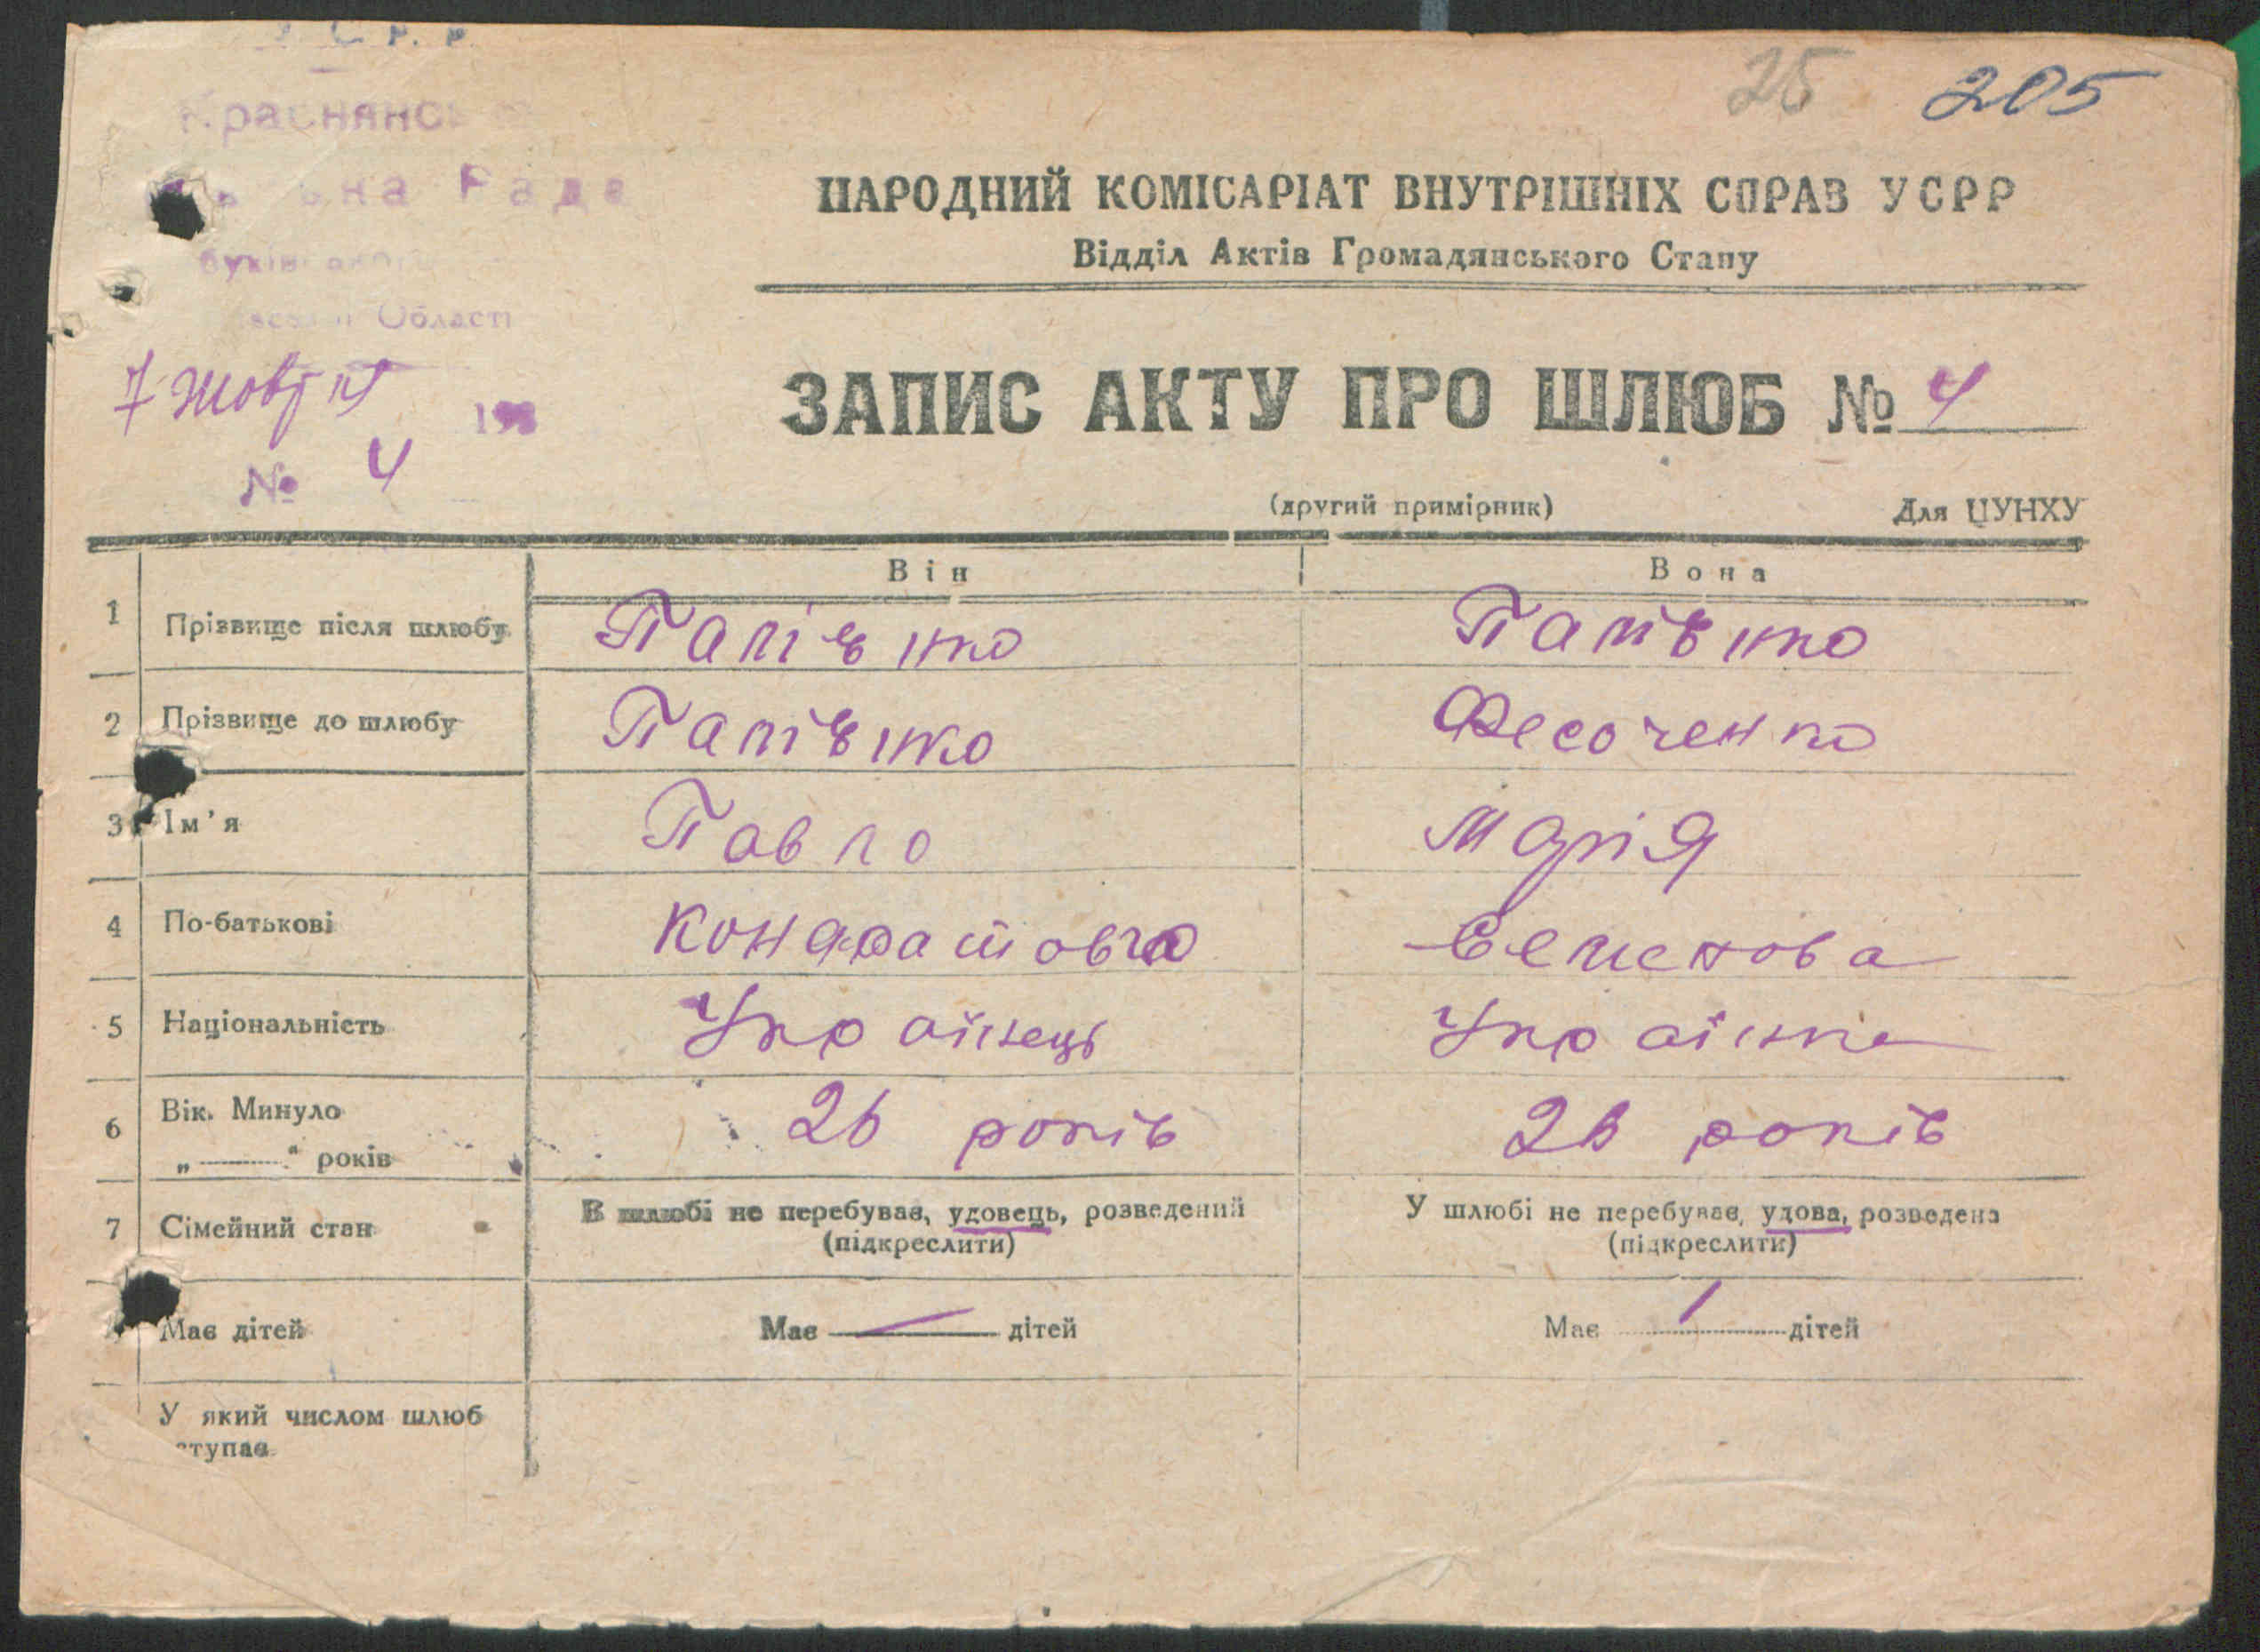 25 205
Рада
Області
7 жовтня 193
№ 4
НАРОДНИЙ КОМІСАРІАТ ВНУТРІШНІХ СПРАВ УСРР
Відділ Актів Громадянського Стану
ЗАПИС АКТУ ПРО ШЛЮБ № 4
(другий примірник) Для ЦУНХУ
Він Вона
1 Прізвище після шлюбу Папівко Папівко
2 Прізвище до шлюбу Папівко Фесоченко
3 Ім'я Павло Марія
4 По-батькові Семенова
5 Національність Украаїнець Украаїнка
6 Вік. Минуло
„ — “ років 26 років 26 років
7 Сімейний стан В шлюбі не перебував, удовець, розведений У шлюбі не перебуває, удова, розведена
(підкреслити) (підкреслити)
Має дітей Має — дітей Має 1 дітей
У який числом шлюб
ступає